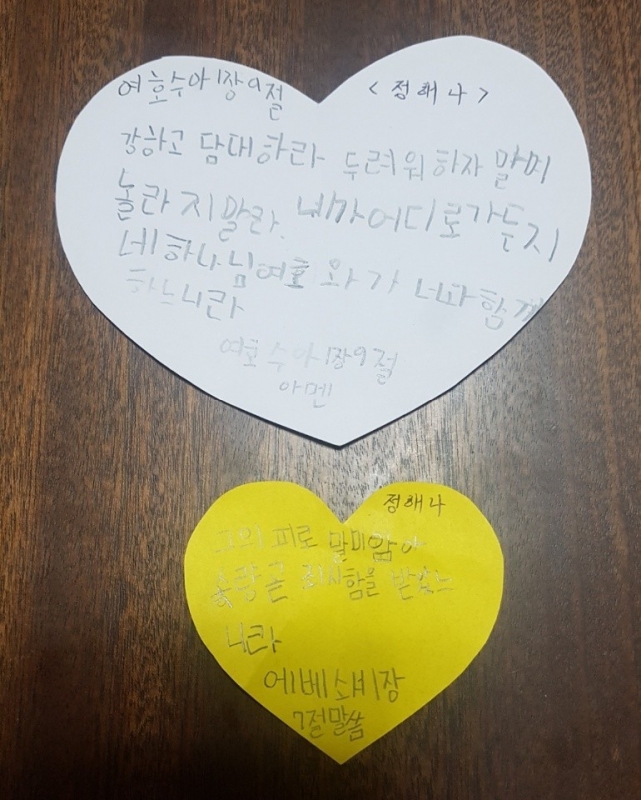 여호수아1장9절
<정해나>
강하고 담대하라 두려워하자 말미
놀라지말라. 네가어디로가든지
네하나님여호와가 너와함께
하느니라
여호수아1장9절
아멘
정해나
그의 피로 말미암아
받았느
니라
에베소서1장
7절말씀